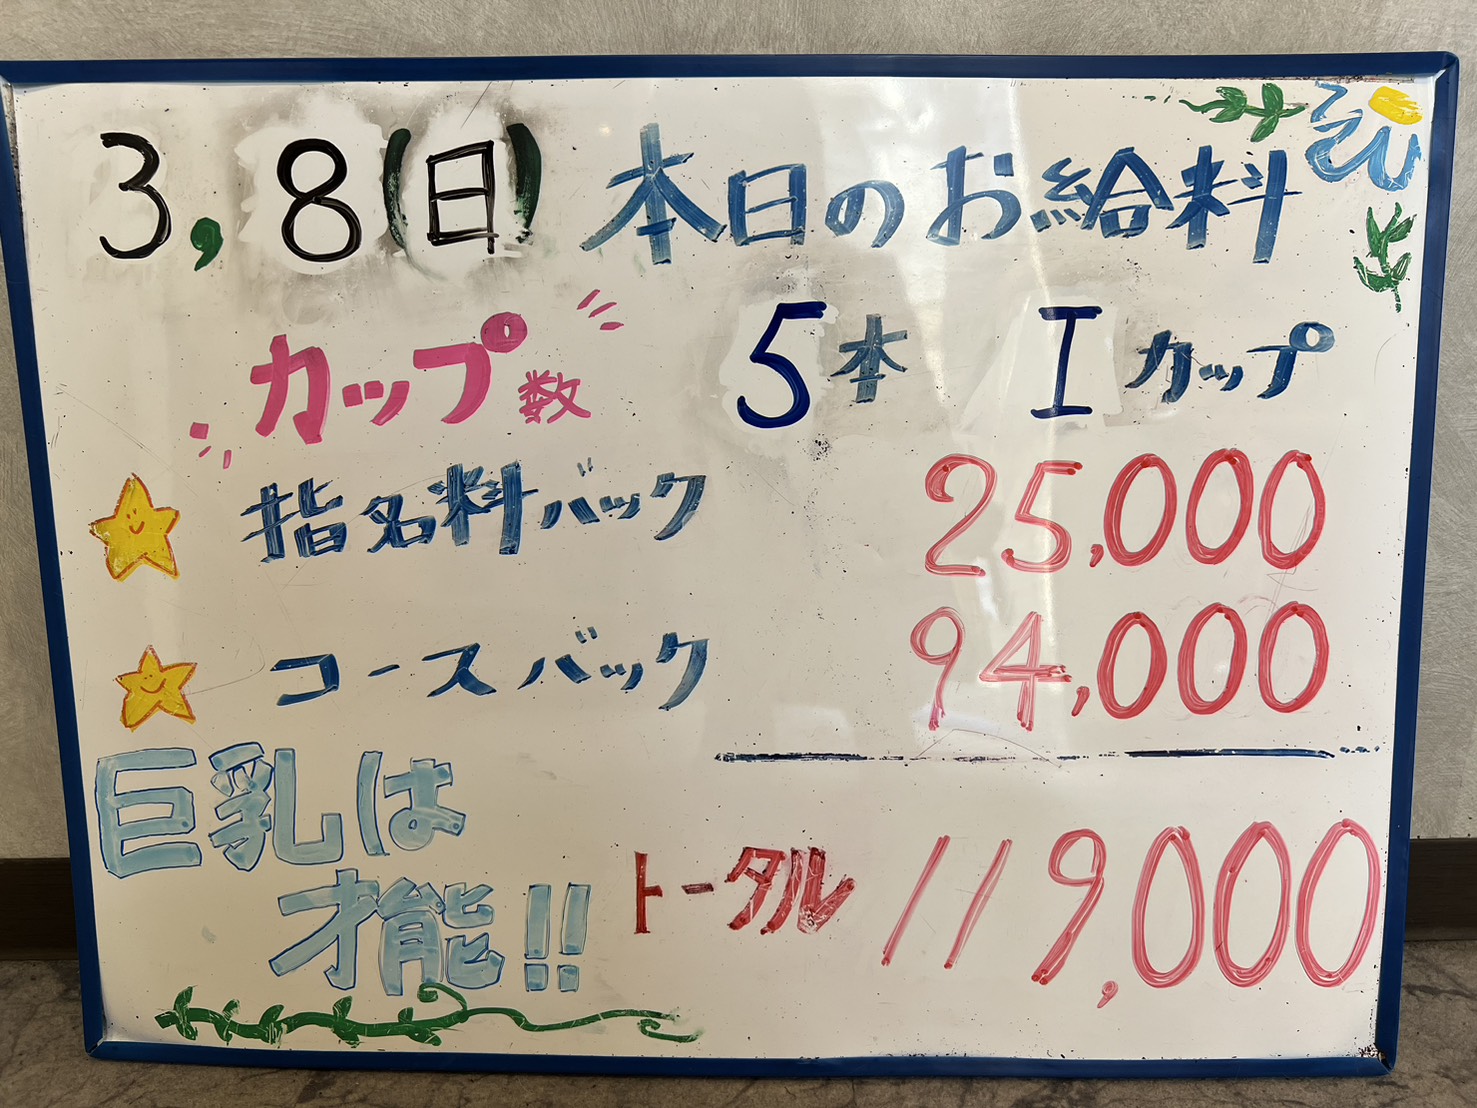 3,8(日) 本日のお給料
カップ数 5本 Iカップ
指名料バック 25,000
コースバック 94,000
巨乳は
才能!!
トータル 119,000